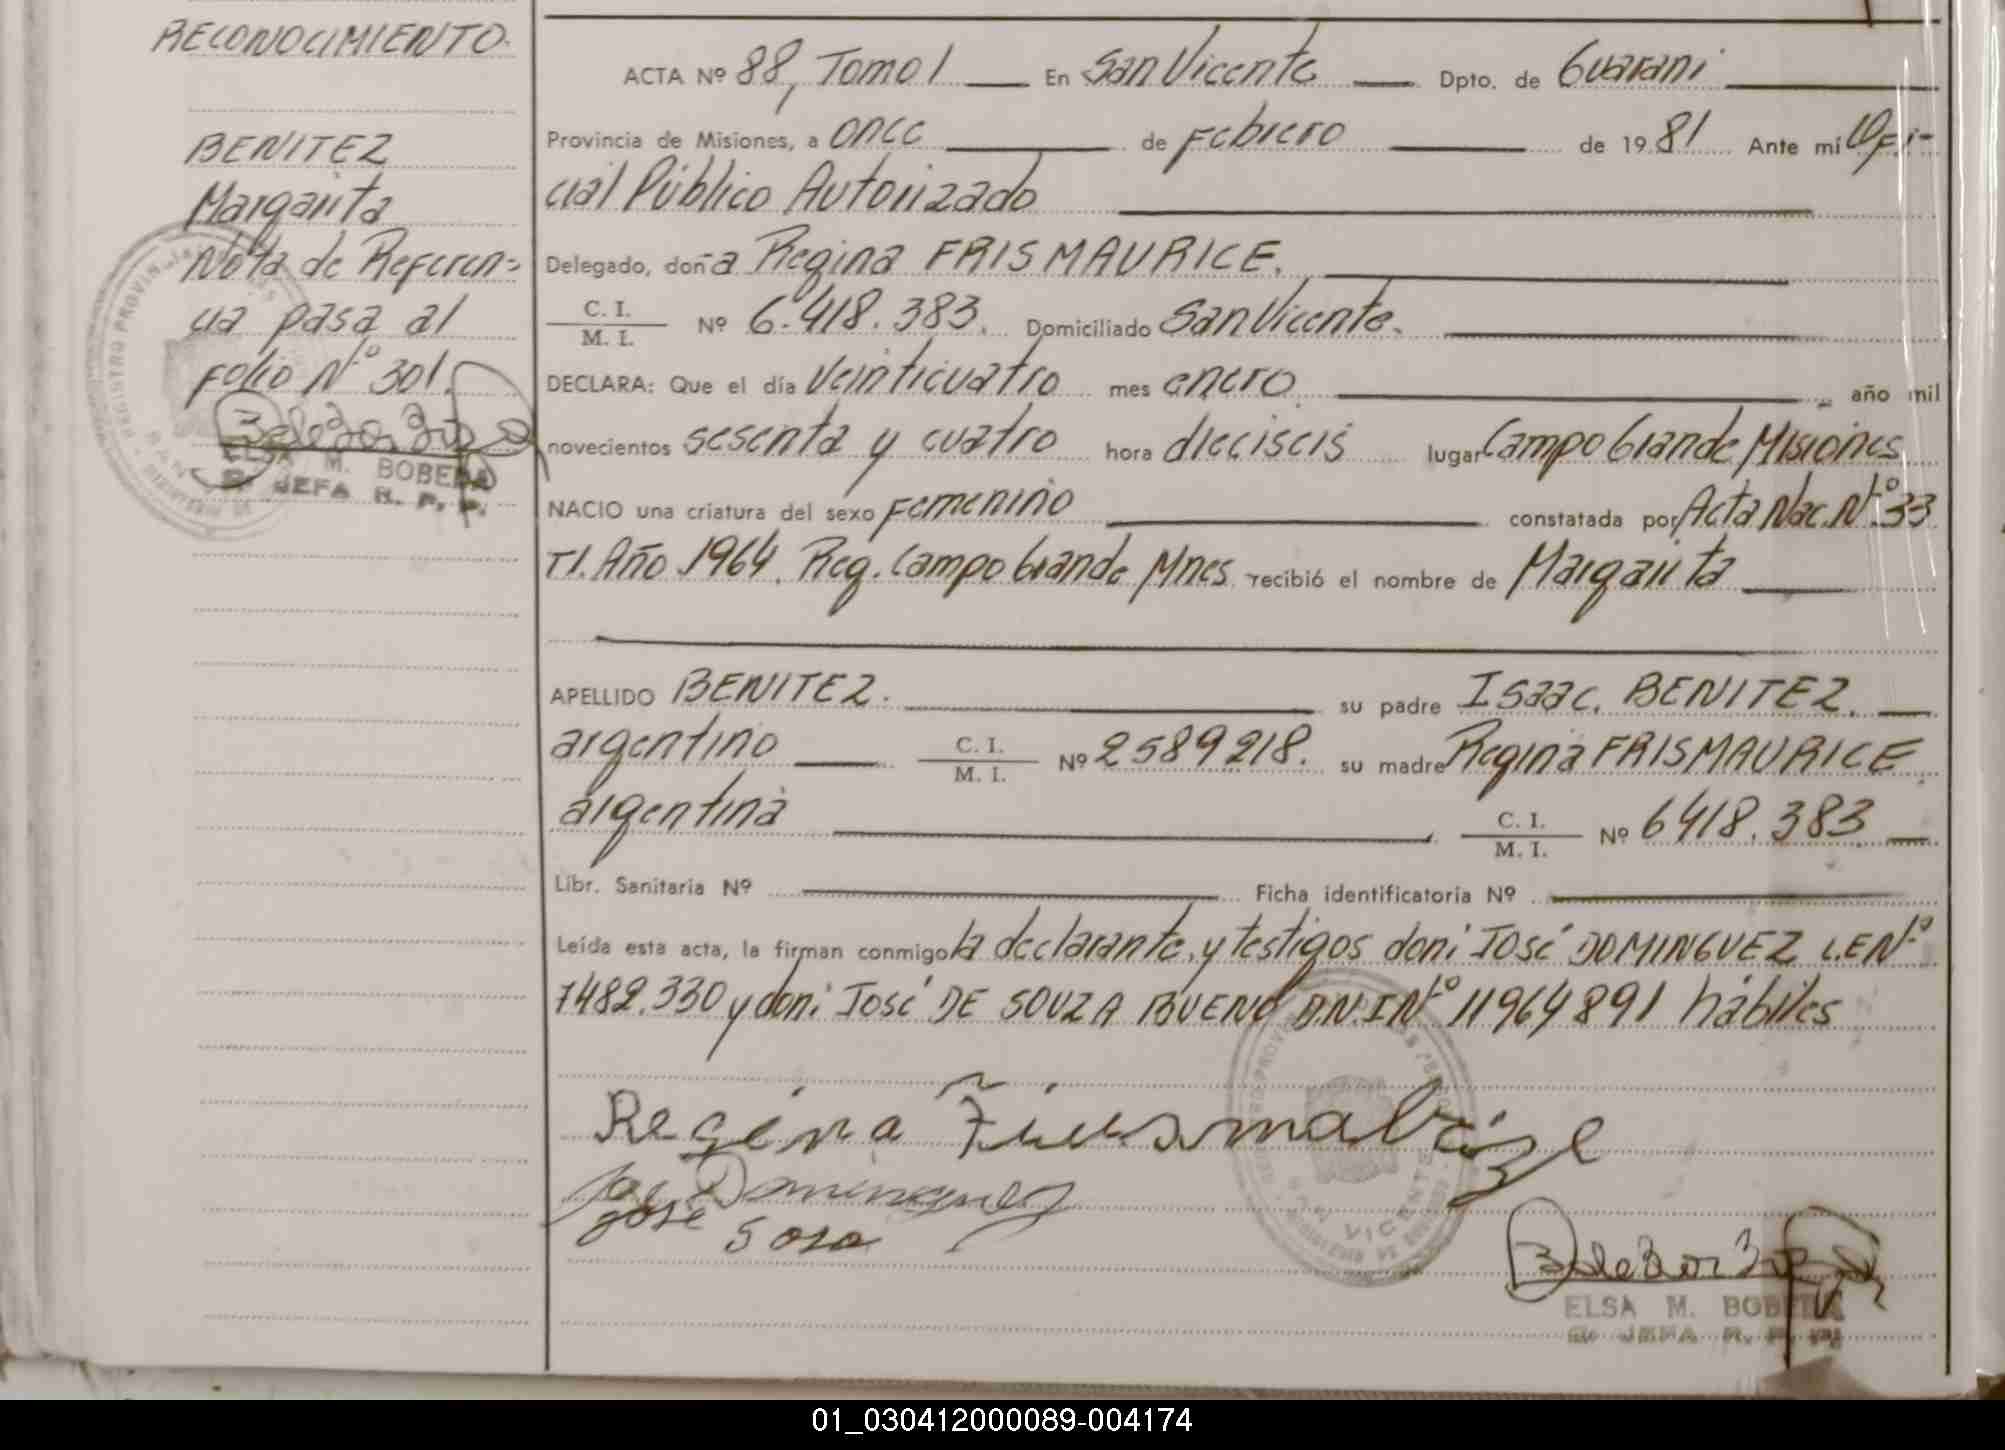 RECONOCIMIENTO.
BENITEZ
Margarita
Nota de Referen-
cia pasa al
folio Nº 301.
ELSA M. BOBEDA
JEFA R. P. P.
ACTA Nº 88, Tomo I En San Vicente Dpto. de Guarani
Provincia de Misiones, a once de Febrero de 1981 Ante mí Ofi-
cial Público Autorizado
Delegado, doña Regina FRISMAURICE.
C. I. / M. I. Nº 6.418.383. Domiciliado San Vicente.
DECLARA: Que el día veinticuatro mes enero año mil
novecientos sesenta y cuatro hora dieciseis lugar Campo Grande Misiones
NACIO una criatura del sexo Femenino constatada por Acta Nac. Nº 33
T1. Año 1964. Reg. Campo Grande Mnes. recibió el nombre de Margarita
APELLIDO BENITEZ. su padre Isaac. BENITEZ.
argentino C. I. / M. I. Nº 2589218. su madre Regina FRISMAURICE.
argentina C. I. / M. I. Nº 6418.383
Libr. Sanitaria Nº Ficha identificatoria Nº
Leída esta acta, la firman conmigo la declarante, y testigos don: José DOMINGUEZ L.E Nº
7482.330 y don: José DE SOUZA BUENO D.N.I Nº 11964891 hábiles
Regina
José Dominguez
José Soza
SAN VICENTE
ELSA M. BOBEDA
JEFA R. P. P.
01_030412000089-004174